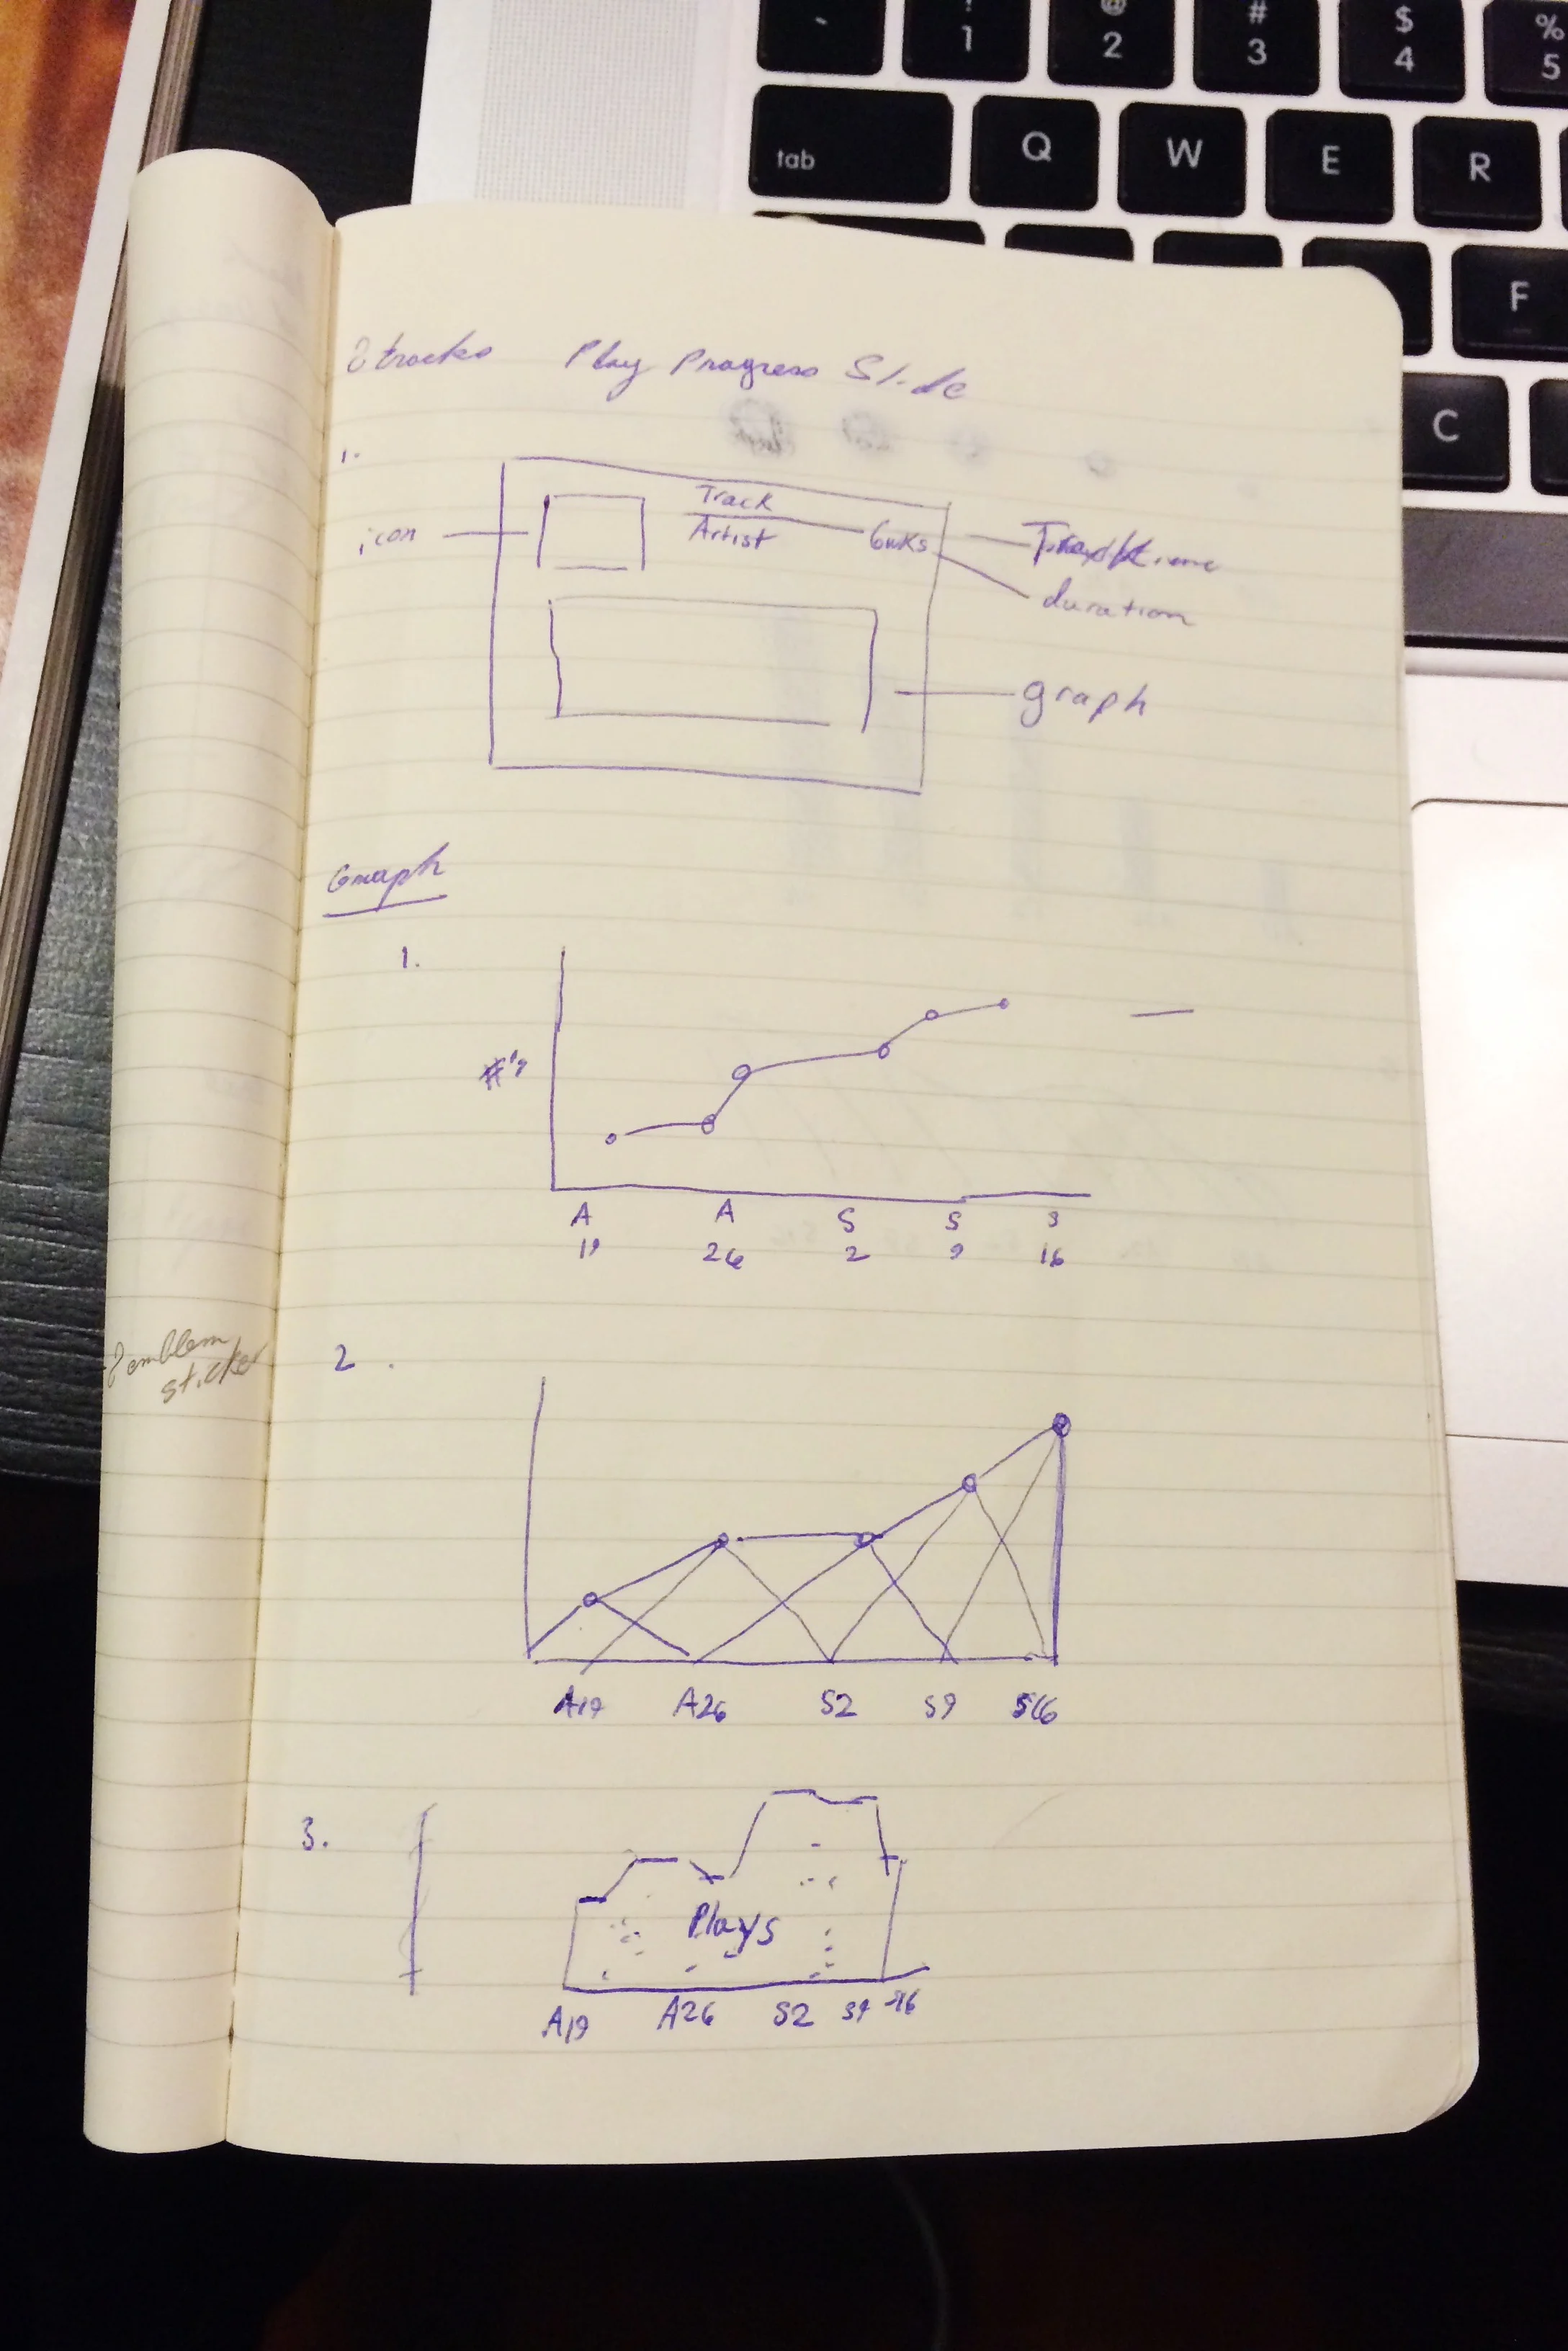 ! @ # $ %
` 1 2 3 4 5
tab Q W E R
F
C
8tracks Play Progress Slide
1.
Track
icon Artist 6wks
duration
graph
Graph
1.
#'s
A A S S S
19 26 2 9 16
emblem
sticker
2.
A19 A26 S2 S9 S16
3.
Plays
A19 A26 S2 S9 S16